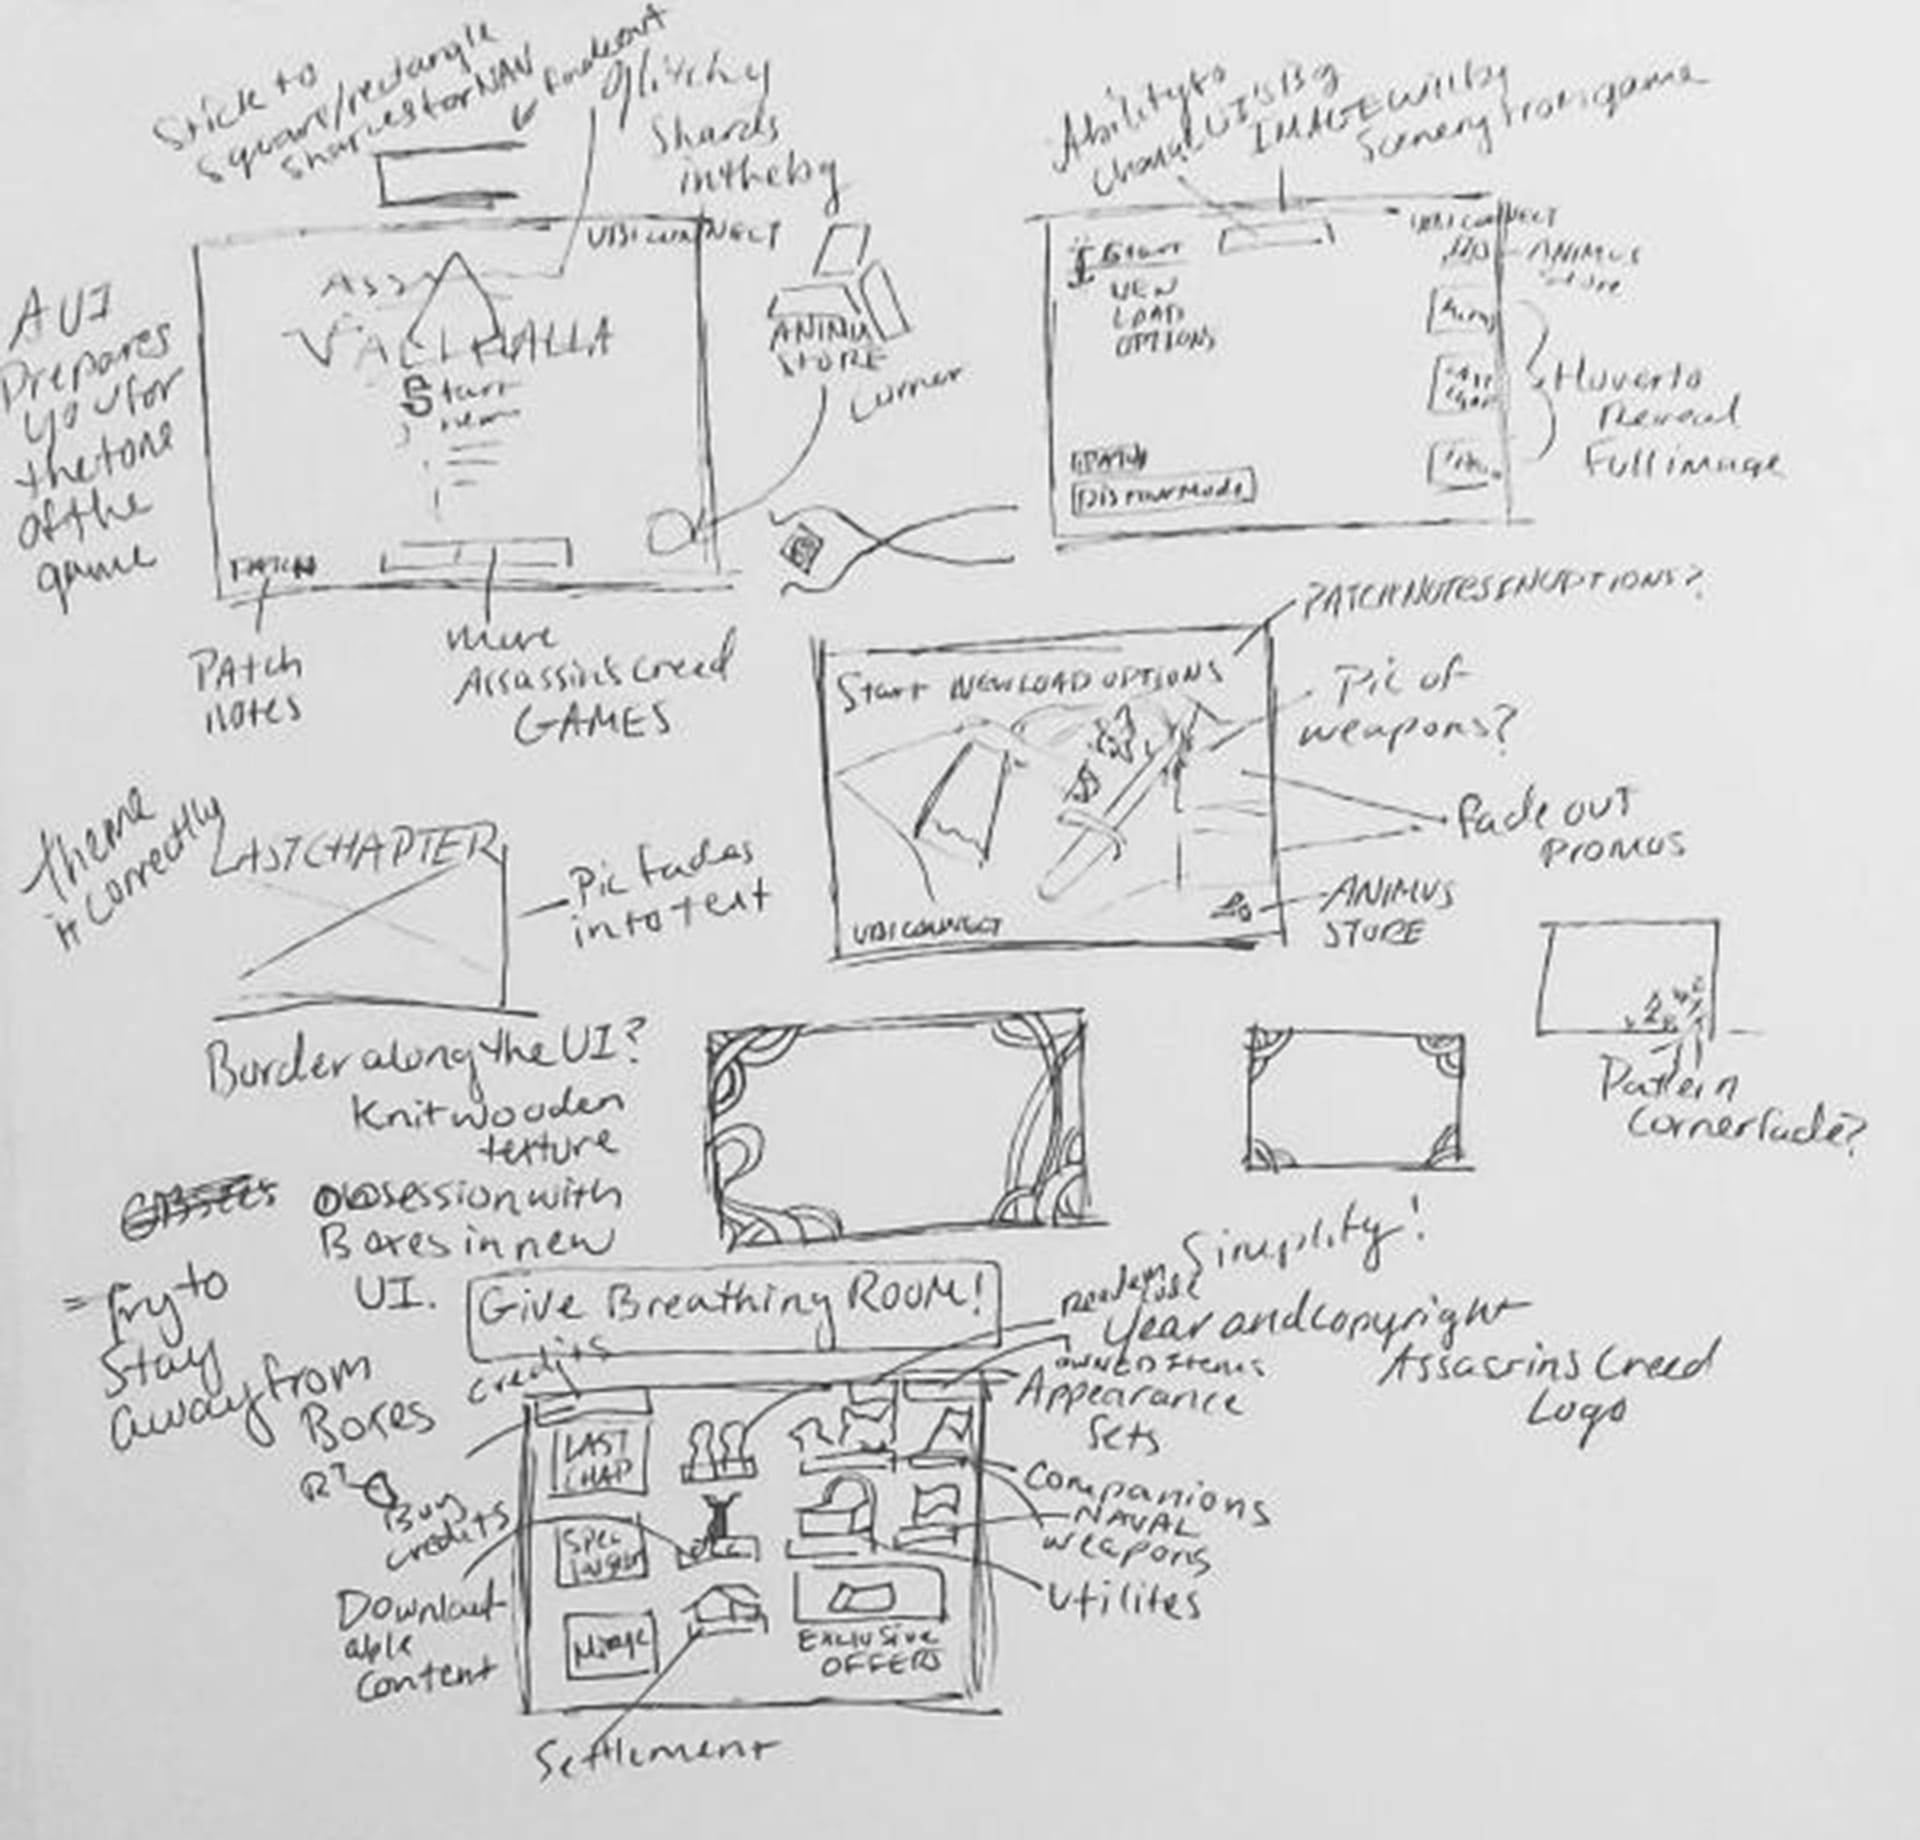 Stick to
square/rectangle
shapes for NAV
Fade out
glitchy
Shards
in the bg
UBI CONNECT
ASS
VALLHALLA
Start
new
PATCH
ANIMU
STORE
Corner
A UI
Prepares
you for
the tone
of the
game
Patch
notes
more
Assassins Creed
GAMES
Ability to
change UI'S Bg
IMAGE will by
Scenery from game
UBI CONNECT
Start
NEW
LOAD
OPTIONS
ANIMUS
Store
PATCH
Hover to
Reveal
Full image
PATCH NOTES IN OPTIONS?
Start NEW LOAD OPTIONS
Pic of
weapons?
Fade out
Promos
UBI CONNECT
ANIMUS
STORE
Theme
it correctly
LAST CHAPTER
Pic fades
into text
Border along the UI?
Knit wooden
texture
Pattern
Corner fade?
Obsession with
Boxes in new
UI.
= Try to
Stay
away from
Boxes
Give Breathing ROOM!
Simplity!
Year and copyright
Assassins Creed
Logo
credits
owned Items
Appearance
Sets
LAST
CHAP
Companions
NAVAL
weapons
Utilites
Buy
credits
Downloat
able
content
Mirage
EXCLUSIVE
OFFERS
Settlement